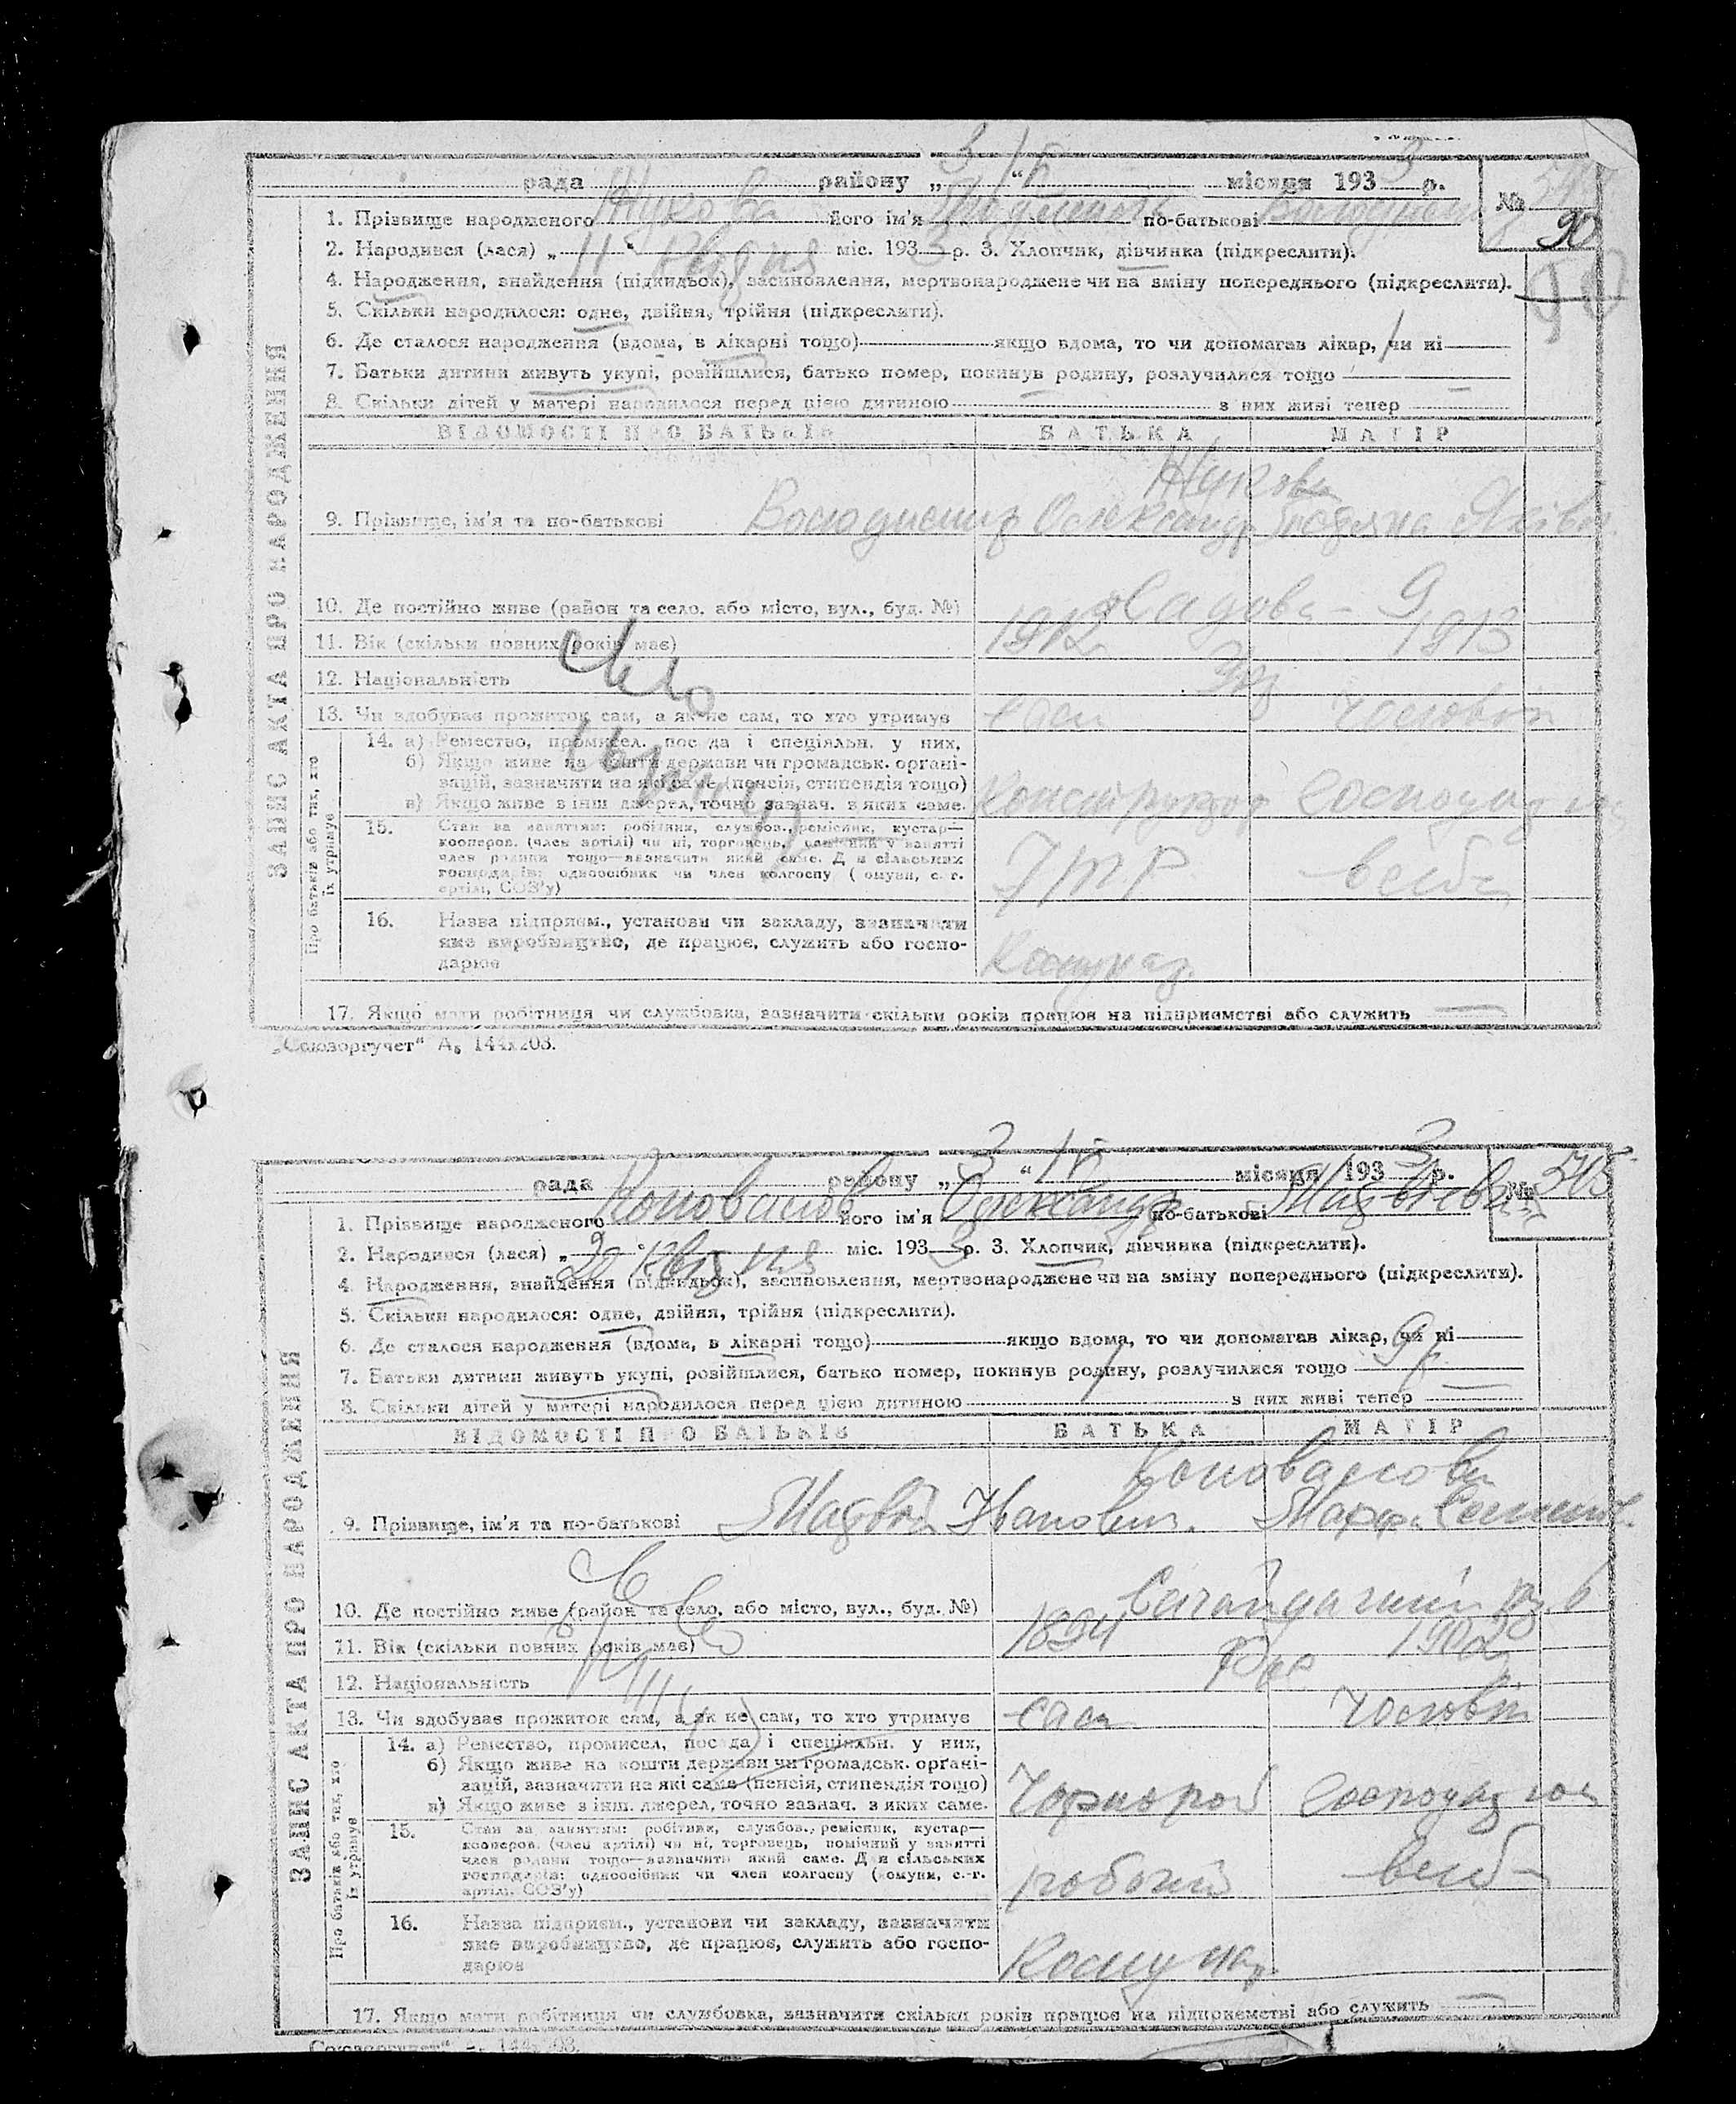 рада Жукова району „3“ IV місяця 1933 р. №
1. Прізвище народженого його ім'я по-батькові 90
2. Народився (лася) „11“ квітня міс. 1933 р. 3. Хлопчик, дівчинка (підкреслити).
4. Народження, знайдення (підкидьок), засиновлення, мертвонароджене чи на зміну попереднього (підкреслити).
5. Скільки народилося: одне, двійня, трійня (підкреслити).
6. Де сталося народження (вдома, в лікарні тощо) якщо вдома, то чи допомагав лікар, чи ні
7. Батьки дитини живуть укупі, розійшлися, батько помер, покинув родину, розлучилися тощо
8. Скільки дітей у матері народилося перед цією дитиною з них живі тепер
ЗАПИС АКТА ПРО НАРОДЖЕННЯ
ВІДОМОСТІ ПРО БАТЬКІВ БАТЬКА МАТІР
Жукови
9. Прізвище, ім'я та по-батькові Володимир Олександр
10. Де постійно живе (район та село, або місто, вул., буд. №) Садова - 9
11. Вік (скільки повних років має) 1912 1913
12. Національність
13. Чи здобуває прожиток сам, а як не сам, то хто утримує сам чоловік
Про батьків або тих, хто їх утримує
14. а) Ремество, промисел, посада і спеціяльн. у них,
б) Якщо живе на кошти держави чи громадськ. органі-
зацій, зазначити на які саме (пенсія, стипендія тощо)
в) Якщо живе з інш. джерел, точно зазнач. з яких саме. Конструктор
15. Стан за заняттям: робітник, службов., ремісник, кустар—
кооперов. (член артілі) чи ні, торговець, помічний у занятті
член родини тощо—зазначити який саме. Для сільських
господарів: одноосібник чи член колгоспу (комуни, с.-г.
артілі, СОЗ'у) ІТР
16. Назва підприєм., установи чи закладу, зазначити
яке виробництво, де працює, служить або госпо-
дарює
17. Якщо мати робітниця чи службовка, зазначити скільки років працює на підприємстві або служить
„Союзоргучет“ А₅ 144x203.
рада району „3“ IV місяця 1933 р. № 545
1. Прізвище народженого Коновалов його ім'я Олександр по-батькові
2. Народився (лася) „20“ квітня міс. 1933 р. 3. Хлопчик, дівчинка (підкреслити).
4. Народження, знайдення (підкидьок), засиновлення, мертвонароджене чи на зміну попереднього (підкреслити).
5. Скільки народилося: одне, двійня, трійня (підкреслити).
6. Де сталося народження (вдома, в лікарні тощо) якщо вдома, то чи допомагав лікар, чи ні
7. Батьки дитини живуть укупі, розійшлися, батько помер, покинув родину, розлучилися тощо
8. Скільки дітей у матері народилося перед цією дитиною з них живі тепер
ЗАПИС АКТА ПРО НАРОДЖЕННЯ
ВІДОМОСТІ ПРО БАТЬКІВ БАТЬКА МАТІР
Коновалови
9. Прізвище, ім'я та по-батькові Матвій Іванович. Марфа
10. Де постійно живе (район та село, або місто, вул., буд. №)
11. Вік (скільки повних років має) 1894 1902
12. Національність
13. Чи здобуває прожиток сам, а як не сам, то хто утримує сам чоловік
Про батьків або тих, хто їх утримує
14. а) Ремество, промисел, посада і спеціяльн. у них,
б) Якщо живе на кошти держави чи громадськ. органі-
зацій, зазначити на які саме (пенсія, стипендія тощо)
в) Якщо живе з інш. джерел, точно зазнач. з яких саме. Чорнороб
15. Стан за заняттям: робітник, службов., ремісник, кустар—
кооперов. (член артілі) чи ні, торговець, помічний у занятті
член родини тощо—зазначити який саме. Для сільських
господарів: одноосібник чи член колгоспу (комуни, с.-г.
артілі, СОЗ'у) робочий
16. Назва підприєм., установи чи закладу, зазначити
яке виробництво, де працює, служить або госпо-
дарює
17. Якщо мати робітниця чи службовка, зазначити скільки років працює на підприємстві або служить
„Союзоргучет“ 144x203.